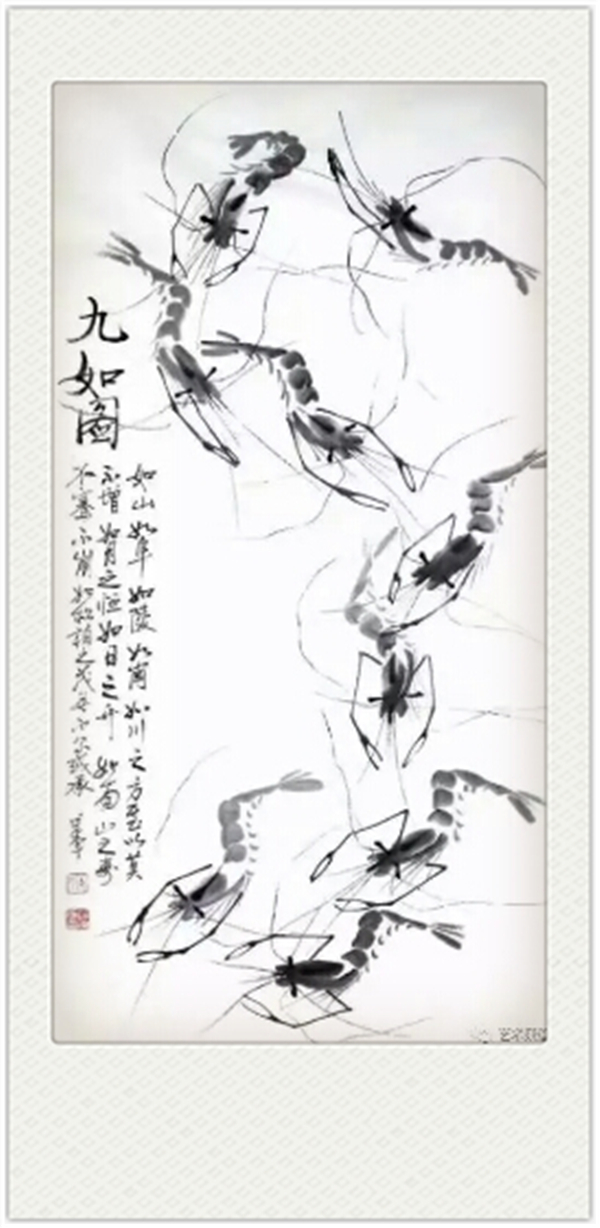 九如圖
如山如阜如陵如岡如川之方至以莫
不增如月之恒如日之升如南山之寿
不騫不崩如松柏之茂無不尔或承